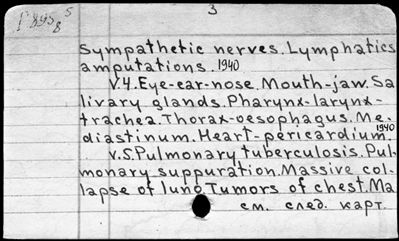 3
Sympathetic nerves. Lymphatics
amputations. 1940
V.4. Eye-ear-nose. Mouth-jaw. Sa
livary glands. Pharynx-larynx-
trachea. Thorax-oesophagus. Me.
diastinum. Heart-pericardium. 1940
v.5. Pulmonary tuberculosis. Pul-
monary suppuration. Massive col-
lapse of lung Tumors of chest. Ma
см. след. карт.